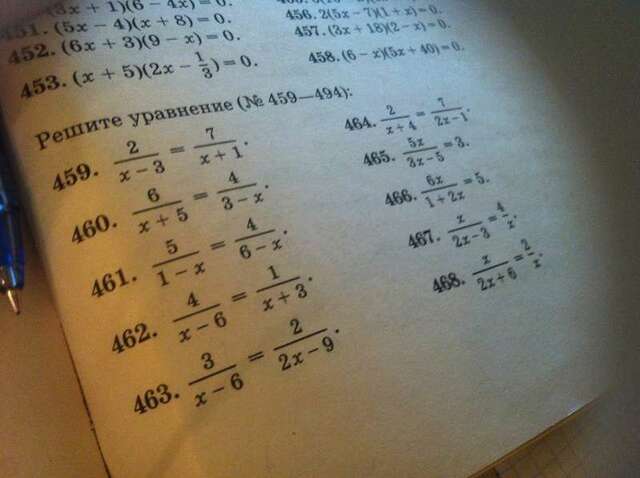 (3x + 1)(6 − 4x) = 0.
451. (5x − 4)(x + 8) = 0.
452. (6x + 3)(9 − x) = 0.
453. (x + 5)(2x − 1/3) = 0.
456. 2(5x − 7)(1 + x) = 0.
457. (3x + 18)(2 − x) = 0.
458. (6 − x)(5x + 40) = 0.
Решите уравнение (№ 459—494):
459. 2/(x − 3) = 7/(x + 1).
460. 6/(x + 5) = 4/(3 − x).
461. 5/(1 − x) = 4/(6 − x).
462. 4/(x − 6) = 1/(x + 3).
463. 3/(x − 6) = 2/(2x − 9).
464. 2/(x + 4) = 7/(2x − 1).
465. 5x/(3x − 5) = 3.
466. 6x/(1 + 2x) = 5.
467. x/(2x − 3) = 4/x.
468. x/(2x + 6) = 2/x.